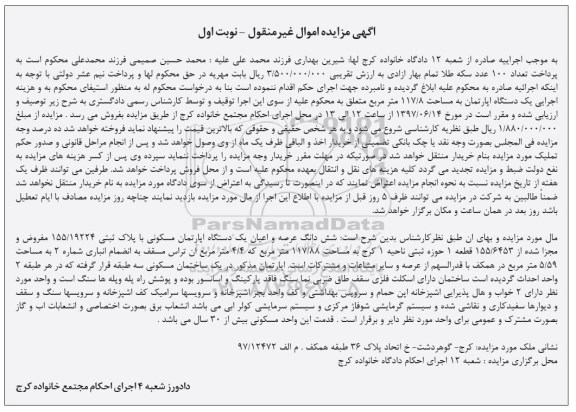 آگهی مزایده اموال غیرمنقول - نوبت اول
به موجب اجراییه صادره از شعبه ۱۲ دادگاه خانواده کرج لها: شیرین بهداری فرزند محمد علی علیه : محمد حسین صمیمی فرزند محمدعلی محکوم است به
پرداخت تعداد ۱۰۰ عدد سکه طلا تمام بهار ازادی به ارزش تقریبی ۳/۵۰۰/۰۰۰/۰۰۰ ریال بابت مهریه در حق محکوم لها و پرداخت نیم عشر دولتی با توجه به
اینکه اجرائیه صادره به محکوم علیه ابلاغ گردیده و نامبرده جهت اجرای حکم اقدام ننموده است بنا به درخواست محکوم له به منظور استیفای محکوم به و هزینه
اجرایی یک دستگاه اپارتمان به مساحت ۱۱۷/۸ متر مربع متعلق به محکوم علیه از سوی این اجرا توقیف و توسط کارشناس رسمی دادگستری به شرح زیر توصیف و
ارزیابی شده و مقرر است در مورخ ۱۳۹۷/۰۶/۱۴ از ساعت ۱۲ الی ۱۳ در محل اجرای احکام مجتمع خانواده کرج از طریق مزایده بفروش می رسد . مزایده از مبلغ
۱/۸۸۰/۰۰۰/۰۰۰ ریال طبق نظریه کارشناسی شروع می شود و به هر شخص حقیقی و حقوقی که بالاترین قیمت را پیشنهاد نماید فروخته خواهد شد ده درصد وجه
مزایده فی المجلس بصورت وجه نقد یا چک بانکی تضمینی از خریدار اخذ و الباقی ظرف یک ماه از وی وصول خواهد شد و پس از انجام مراحل قانونی و صدور حکم
تملیک مورد مزایده بنام خریدار منتقل خواهد شد در صورتیکه در مهلت مقرر خریدار وجه مزایده را پرداخت ننماید سپرده وی پس از کسر هزینه های مزایده به
نفع دولت ضبط و مزایده تجدید می گردد کلیه هزینه های نقل و انتقال بعهده محکوم علیه است و از محل فروش پرداخت خواهد شد. طرفین می توانند ظرف یک
هفته از تاریخ مزایده نسبت به نحوه انجام مزایده اعتراض نمایند که در اینصورت تا رسیدگی به اعتراض از سوی دادگاه مورد مزایده به نام خریدار منتقل نخواهد شد
ضمناً طالبین به شرکت در مزایده می توانند ظرف ۵ روز قبل از مزایده با اطلاع این اجرا از مال مورد مزایده بازدید نمایند چنانچه روز مزایده مصادف با ایام تعطیل
باشد روز بعد در همان ساعت و مکان برگزار خواهد شد.
مال مورد مزایده و بهای ان طبق نظرکارشناس بدین شرح است: شش دانگ عرصه و اعیان یک دستگاه اپارتمان مسکونی با پلاک ثبتی ۱۵۵/۱۹۲۲۴ مفروض و
مجزا شده از ۱۵۵/۶۴۵۳ قطعه ۱ حوزه ثبتی ناحیه ۱ کرج به مساحت ۱۱۷/۸۸ متر مربع که ۴/۴ متر مربع ان تراس مسقف به انضمام انباری شماره ۲ به مساحت
۵/۵۹ متر مربع در همکف با قدرالسهم از عرصه و سایر مشاعات و مشترکات است. اپارتمان مذکور در یک ساختمان مسکونی سه طبقه قرار گرفته که در هر طبقه ۲
واحد احداث گردیده است ساختمان دارای اسکلت فلزی سقف طاق ضربی نما سنگی فاقد پارکینگ و آسانسور بوده و پوشش راه پله وپله ها سنگ است و واحد مورد
نظر دارای ۲ خواب و هال پذیرایی اشپزخانه این حمام و سرویس بهداشتی و کف واحد بجز اشپزخانه و سرویسها سرامیک کف اشپزخانه و سرویسها سنگ و سقف
و دیوارها سفیدکاری و نقاشی شده و سیستم گرمایشی شوفاژ مرکزی و سیستم سرمایشی کولر ابی می باشد انشعاب برق بصورت اختصاصی و انشعابات اب و گاز
بصورت مشترک و عمومی برای واحد مورد نظر دایر و برقرار است . قدمت این واحد مسکونی بیش از ۳۰ سال می باشد .
نشانی ملک مورد مزایده: کرج- گوهردشت- خ اتحاد پلاک ۳۶ طبقه همکف . م الف ۹۷/۱۲۴۷۲
محل برگزاری مزایده : شعبه ۱۲ اجرای احکام دادگاه خانواده کرج
دادورز شعبه ۴ اجرای احکام مجتمع خانواده کرج